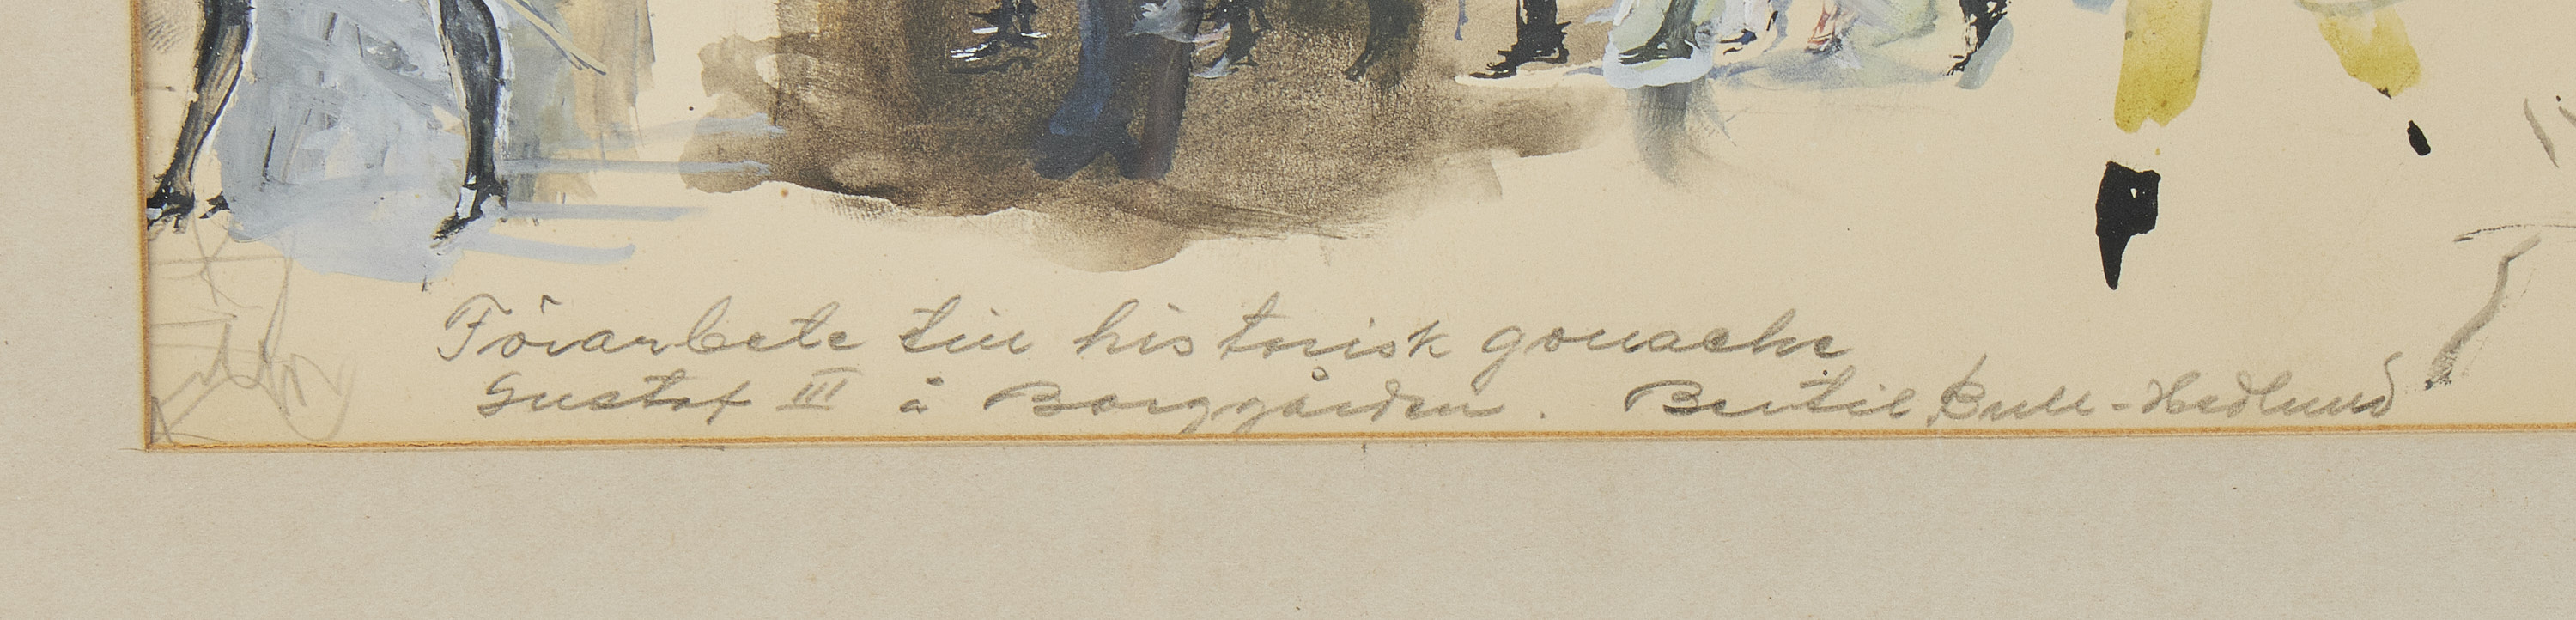 Förarbete till historisk gouache
Gustaf III å Borggården. Bertil Bull-Hedlund